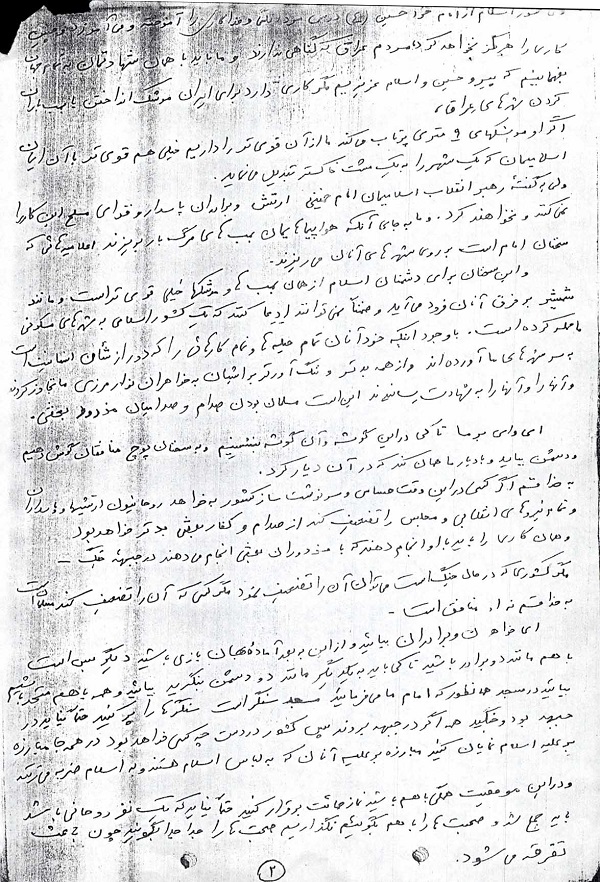 کاری را هرگز نخواهد کرد مردم عراق که گناهی ندارند و ما باید با همان شهادتمان به تمام جهان
بفهمانیم که پیرو حسین و اسلام عزیزیم مگر کاری دارد برای ایران موشک انداختن یا بمباران
کردن شهرهای عراق،
اگر او موشکهای ۹ متری پرتاب می‌کند ما از آن قوی تر را داریم خیلی هم قوی تر با آن ایمان
اسلامیمان که یک شهر را به یک مشت خاکستر تبدیل می نماید.
ولی به گفتهٔ رهبر انقلاب اسلامیمان امام خمینی ارتش و برادران پاسدار و قوای مسلح این کار را
نمی کند و نخواهند کرد. و ما به جای آنکه هواپیماهایمان بمب های مرگ بار بریزند اعلامیه هائی که
سخنان امام است بر روی شهرهای آنان می ریزند.
و این سخنان برای دشمنان اسلام از همان بمب ها و موشکها خیلی قوی تر است و مانند
شمشیر بر فرق آنان فرود می آید و ضمناً نمی توانند ادعا کنند که یک کشور اسلامی به شهرهای مسکونی
ما حمله کرده است. با وجود اینکه خود آنان تمام حمله ها و تمام کارهائی را که دور از شأن انسانیت است
به سر شهرهای ما آورده اند و از همه بدتر و ننگ آورتر برایشان به خواهران نوار مرزی ما تجاوز کردند
و آنها را و آنها را به شهادت رساندند این است مسلمان بودن صدام و صدامیان مزدور بعثی.
ای وای بر ما تا کی در این گوشه و آن گوشه بنشینیم و به سخنان پوچ منافقان گوش دهیم
و دشمن بیاید و با دیار ما همان کند که در آن دیار کرد.
به خدا قسم اگر کسی در این وقت حساس و سرنوشت ساز کشور بخواهد روحانیون ارتشیها و پاسداران
و تمام نیروهای انقلابی و مجلس را تضعیف کند از صدام و کفار بعثی بدتر خواهد بود
و همان کاری را باید با او انجام دهند که با مزدوران بعثی انجام می دهند در جبهه جنگ -
مگر کشوری که در حال جنگ است می توان آن را تضعیف نمود مگر کسی که آن را تضعیف کند مسلمان است
به خدا قسم نه او منافق است -
ای خواهران و برادران بیائید و از این به بعد آمادهٔ جهان بازی باشید دیگر بس است
با هم مانند دو برادر باشید تا کی باید به یکدیگر مانند دو دشمن بنگرید بیائید و همه با هم متحد باشیم
بیائید در مسجد همانطور که امام ما می فرمایند مسجد سنگر است سنگرها را پر کنید حتماً نباید در
جبهه بود و جنگید همه اگر در جبهه بروند پس کشور در دست چه کسی خواهد بود در همه جا مبارزه
بر علیه اسلام نمایان کنید مبارزه بر علیه آنان که به لباس اسلام هستند و به اسلام ضربه می زنند
و در این موقعیت همگی با هم باشید نماز جماعت برقرار کنید حتماً نباید که یک نفر روحانی باشد
باید جمع شد و صحبت ها را با هم بگوئیم نگذاریم صحبت ها را جدا جدا بگویند چون باعث
تفرقه می شود.
۲